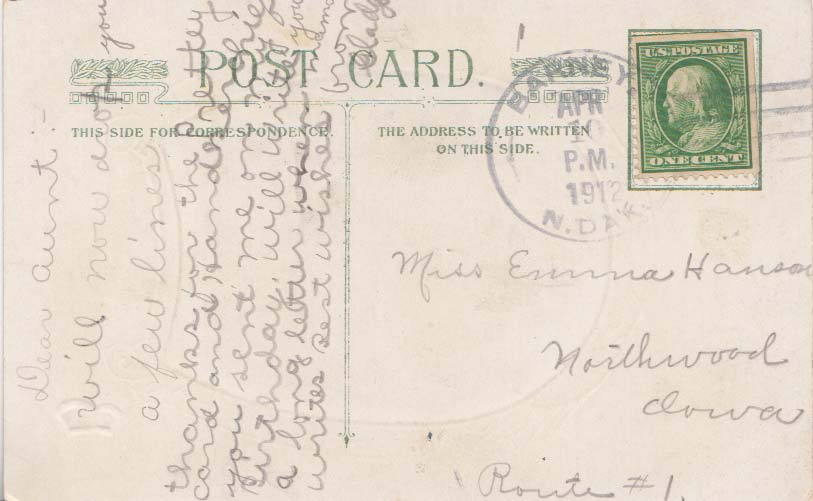 POST CARD.
THIS SIDE FOR CORRESPONDENCE.
THE ADDRESS TO BE WRITTEN
ON THIS SIDE.
U.S. POSTAGE
ONE CENT
BARNEY
APR
P.M.
1912
N. DAK.
Miss Emma Hanson
Northwood
Iowa
Route #1.
Dear Aunt:-
I will now drop you
a few lines
thanks for the pretty
card and handkerchief
you sent me on my
birthday. Will write you
a long letter when
writes best wishes
from